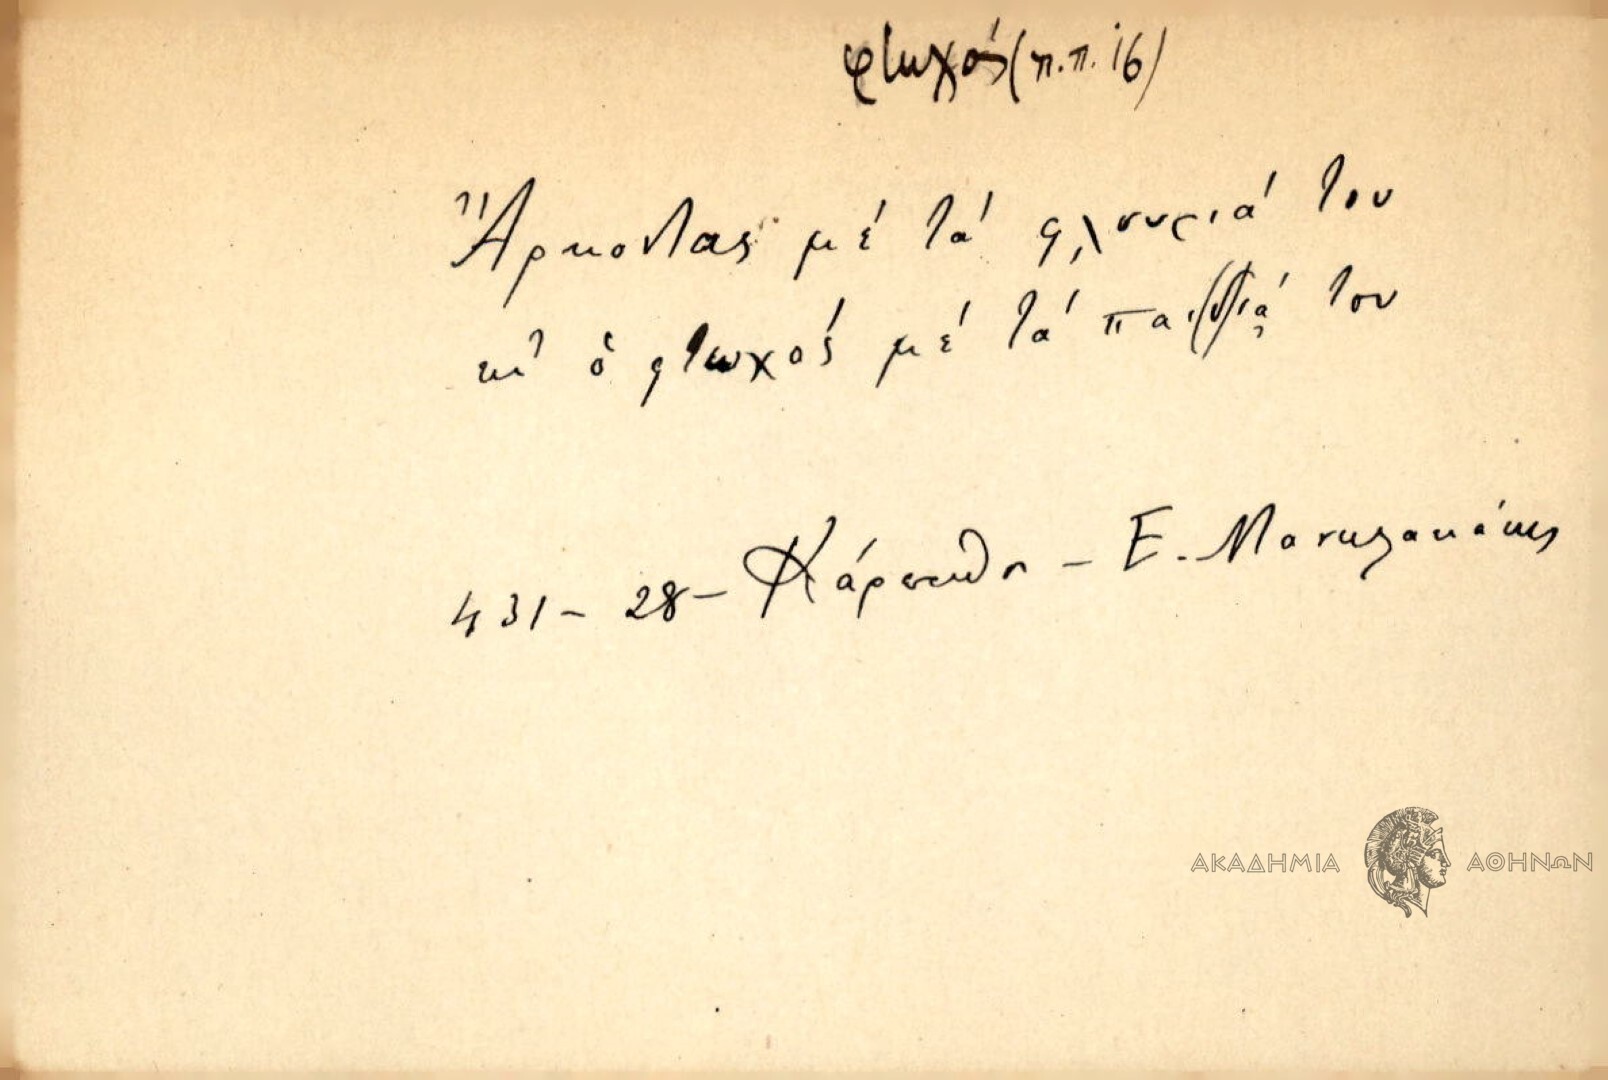 φτωχός (π.π. 16)
Ἄρκοντας μέ τά φλουριά του
κι' ὁ φτωχός μέ τά παι(δ)ιά του
431 - 28 - Κάρπαθο - Ε. Μανωλακάκης
ΑΚΑΔΗΜΙΑ ΑΘΗΝΩΝ